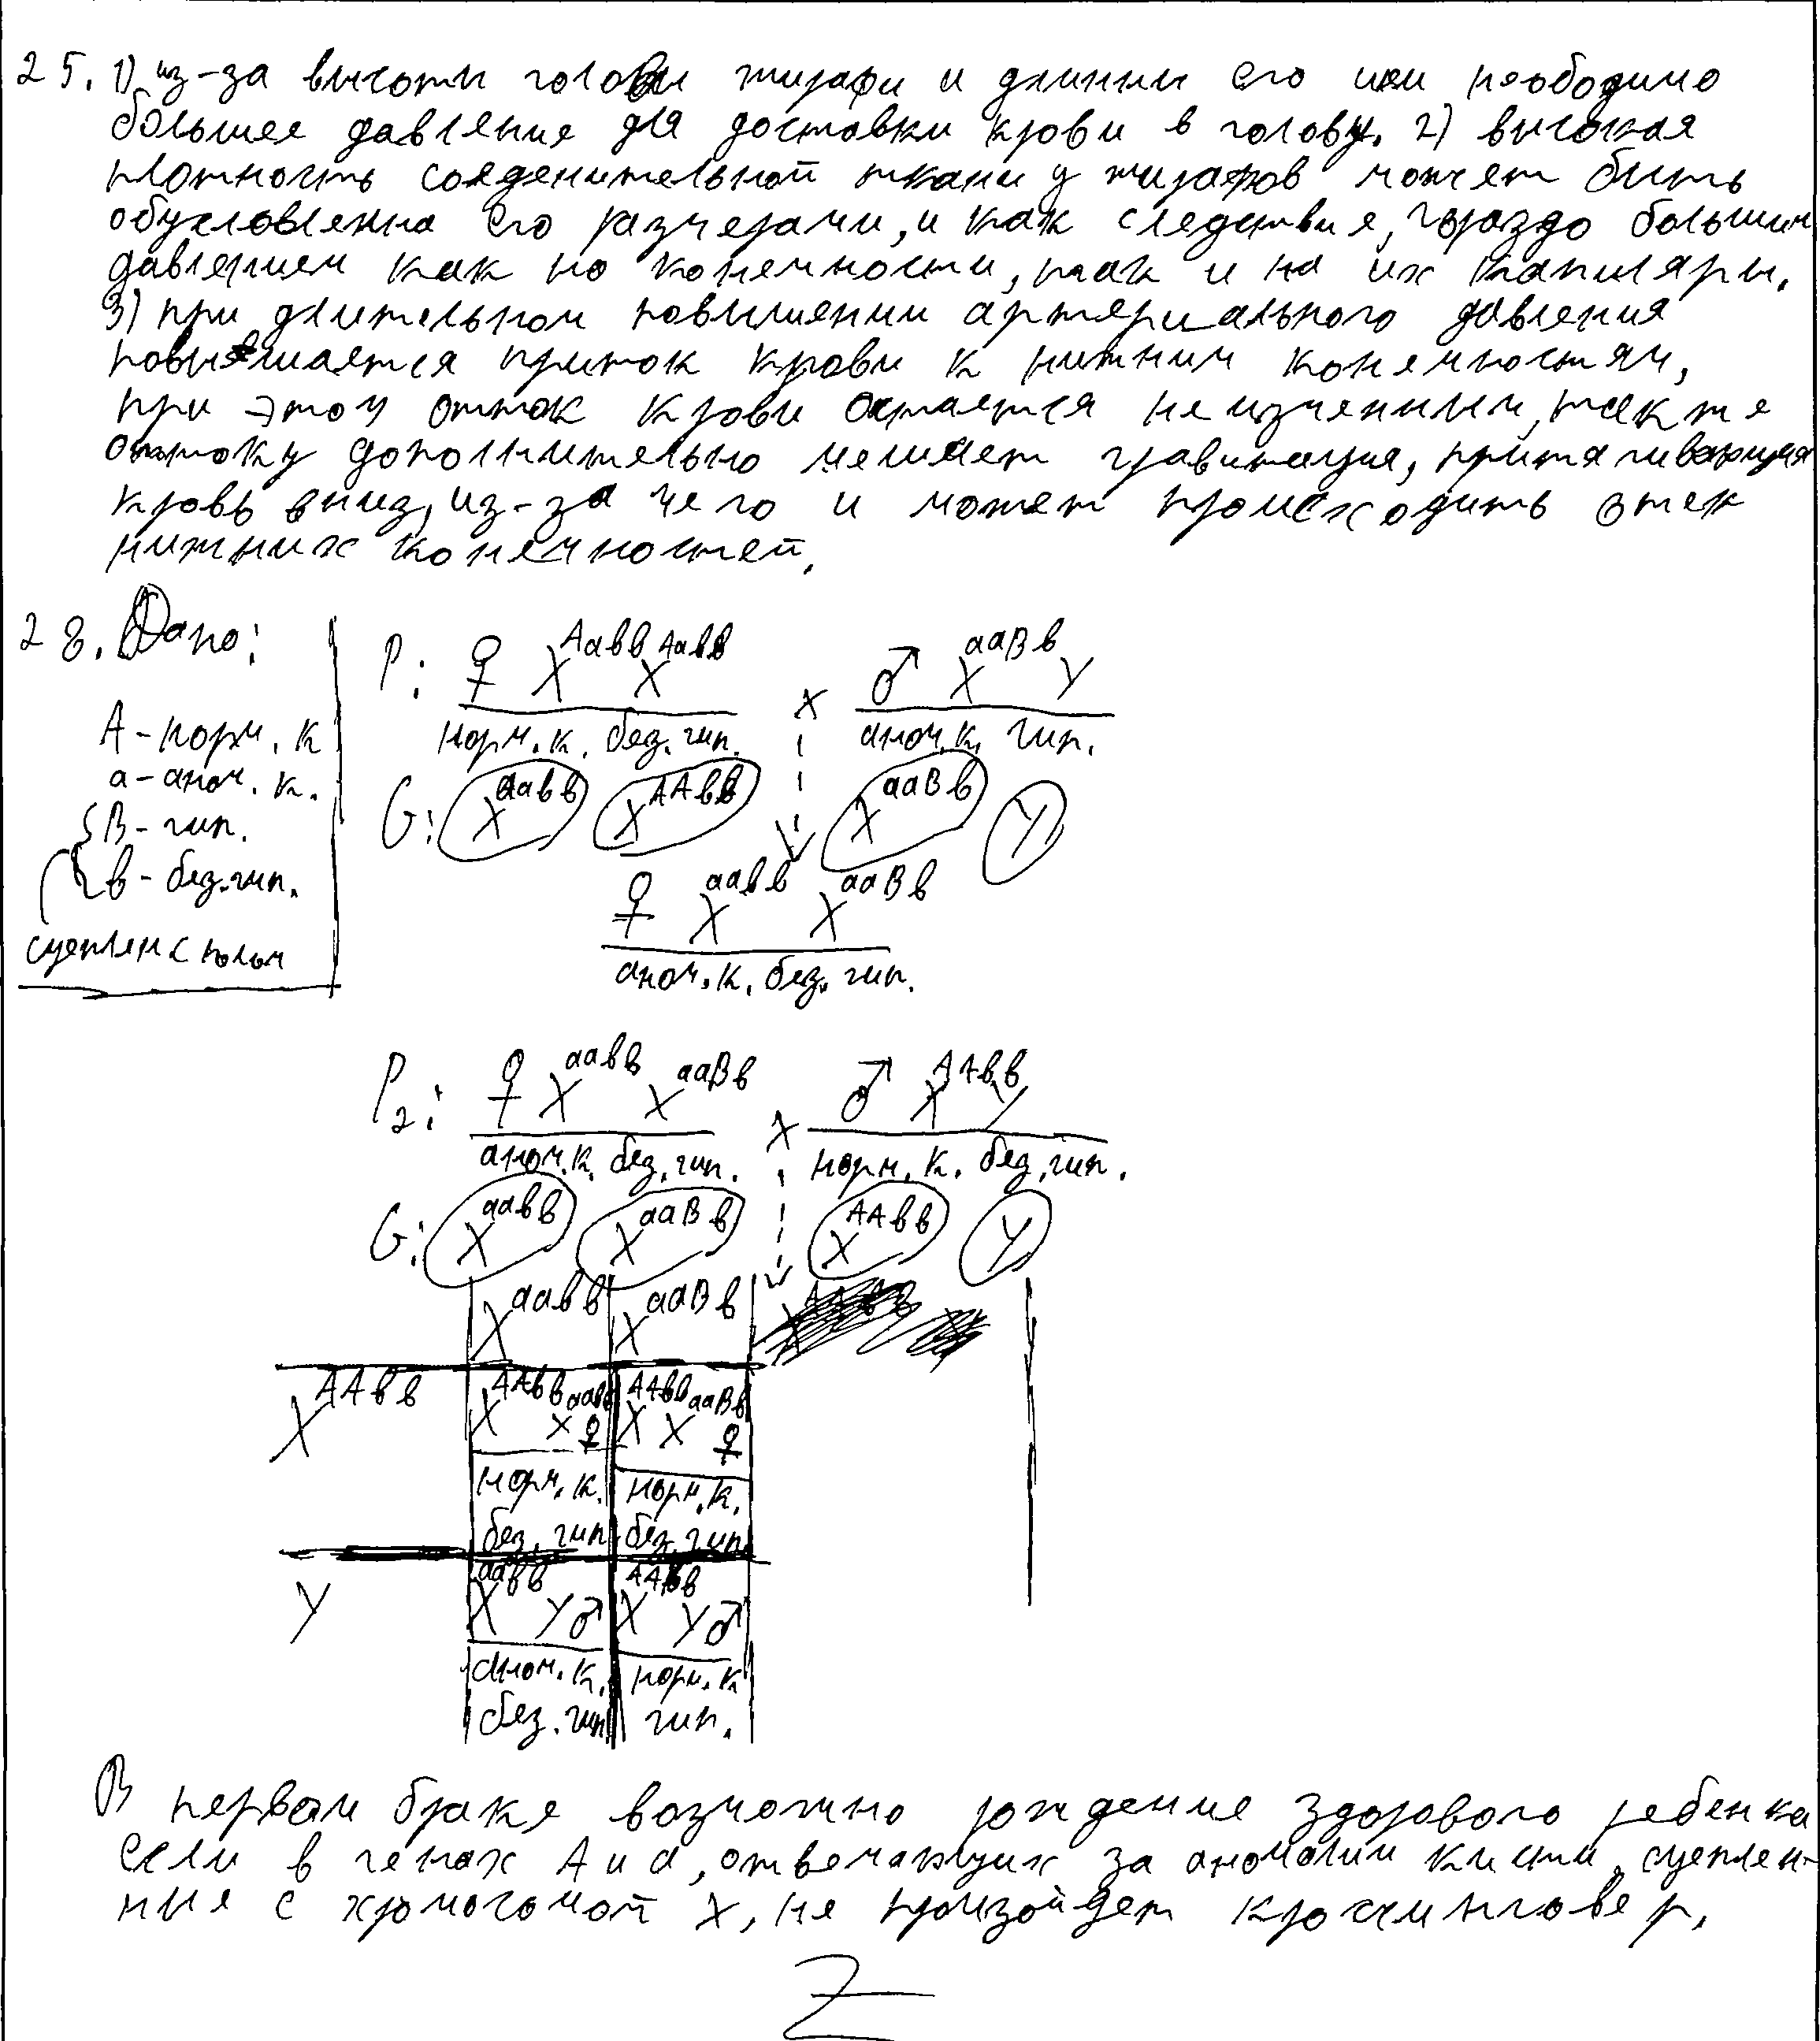 25. 1) из-за высоты головы жирафи и длинны его шеи необбодимо
большее давление для доставки крови в голову. 2) высокая
плотность соеденительной ткани у жирафов может быть
обусловленна его размерами, и как следствие, гораздо большим
давлением как на конечности, так и на их капиляры.
3) при длительном повышении артериального давления
повышается приток крови к нижним конечностям,
при этом отток крови остается неизменным, также
оттоку дополнительно мешает гравитация, притягивающая
кровь вниз, из-за чего и может происходить отек
нижних конечностей.
28. Дано:
А - норм. к
а - аном. к.
В - гип.
в - без. гип.
сцеплен с полом
P: ♀ X^Aaвв X^Aaвв x ♂ X^aaBв Y
норм. к. без. гип. аном. к. гип.
G: X^aaвв X^AAвв X^aaBв Y
♀ X^aaвв X^aaBв
аном. к. без. гип.
P2: ♀ X^aaвв X^aaBв x ♂ X^AAвв Y
аном. к. без. гип. норм. к. без. гип.
G: X^aaвв X^aaBв X^AAвв Y
X^aaвв X^aaBв
X^AAвв X^AAвв X^aaвв ♀ X^AAвв X^aaBв ♀
норм. к. норм. к.
без. гип без. гип.
Y X^aaвв Y ♂ X^AABв Y ♂
аном. к. норм. к
без. гип гип.
В первом браке возможно рождение здорового ребенка
если в генах А и а, отвечающих за аномалии кисти, сцеплен-
ные с хромосомой X, не произойдет кроссинговер.
Z